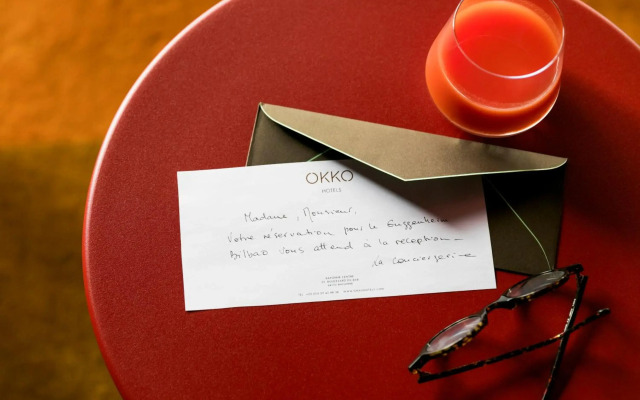 OKKO
HOTELS
Madame, Monsieur,
Votre réservation pour le Guggenheim
Bilbao vous attend à la réception_
La Conciergerie